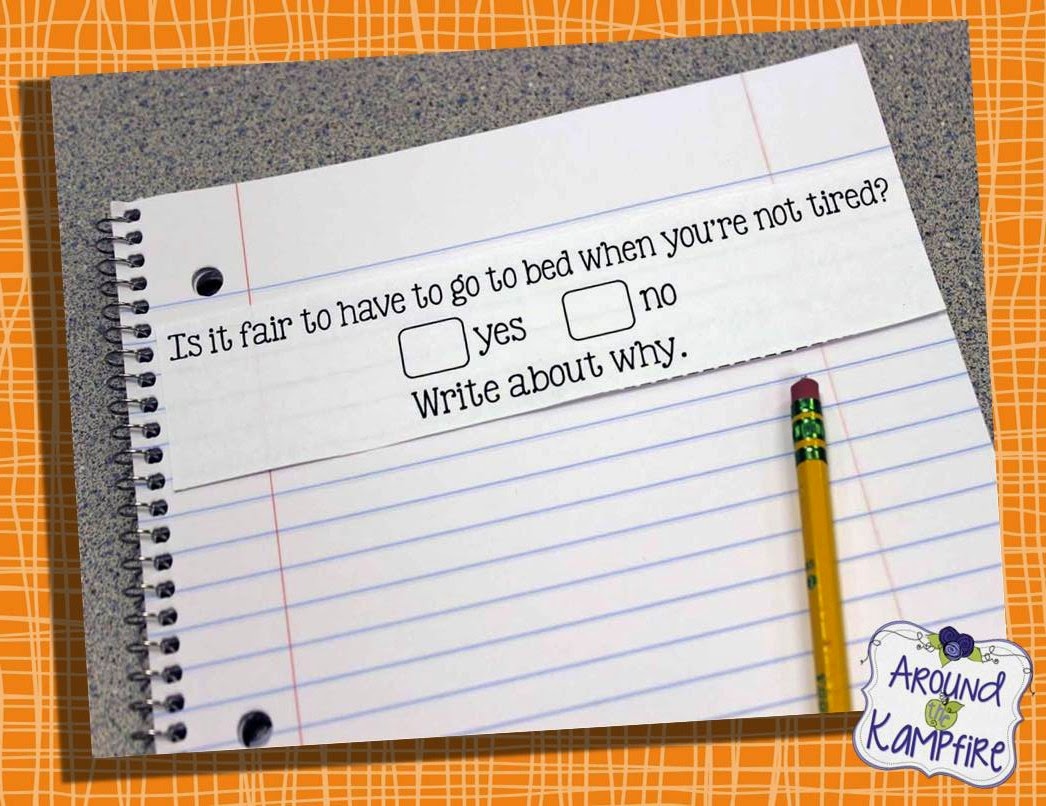 Is it fair to have to go to bed when you're not tired?
yes no
Write about why.
AROUND
THE
KAMPFIRE